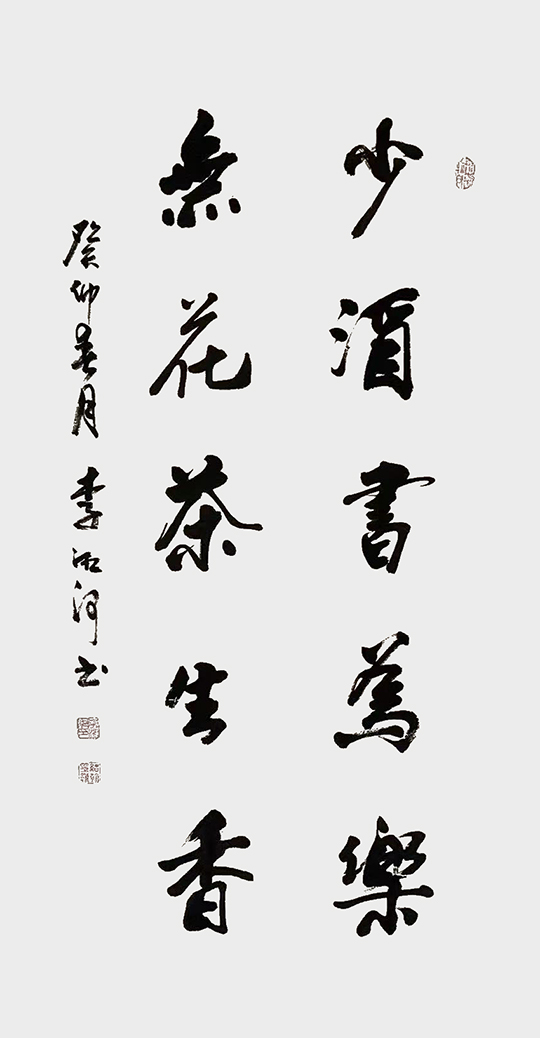 少酒書為樂
無花茶生香
癸卯春月 李湘河书